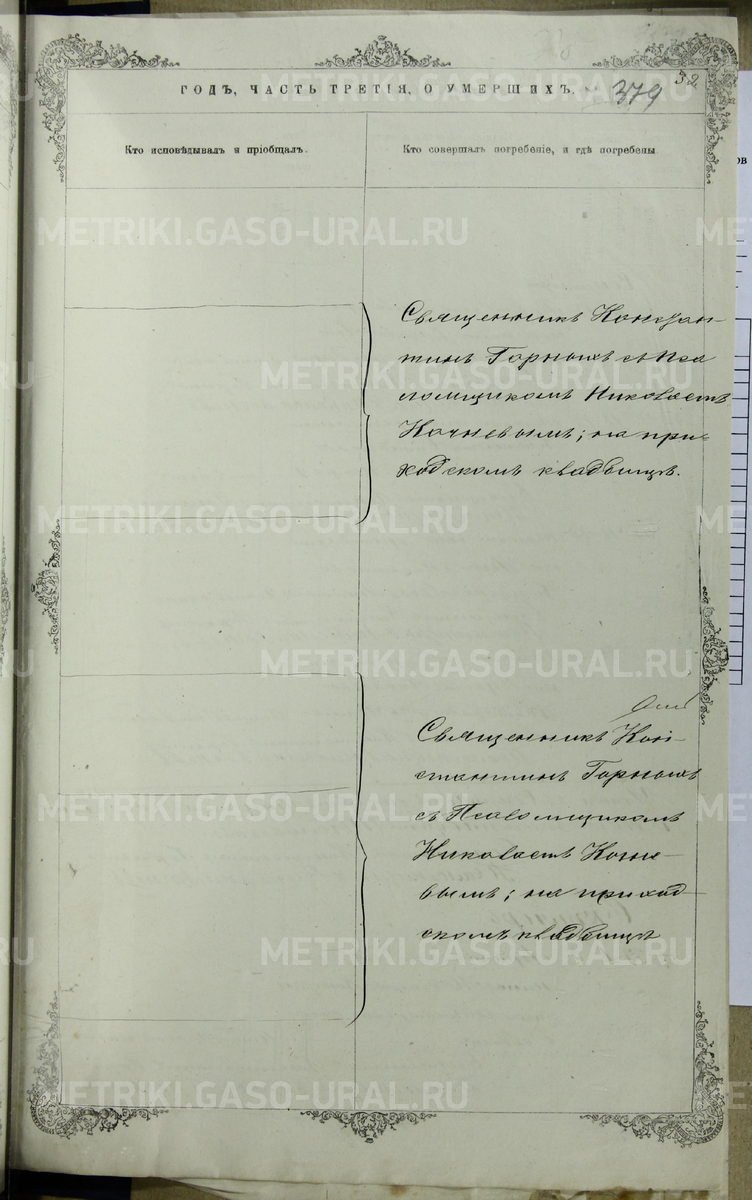 32
ГОДЪ, ЧАСТЬ ТРЕТІЯ, О УМЕРШИХЪ. 379
Кто исповѣдывалъ и пріобщалъ.
Кто совершалъ погребеніе, и гдѣ погребены
Священникъ Констан-
тинъ Горныхъ съ Пса
ломщикомъ Николаемъ
Кочневымъ; на при-
ходскомъ кладбищѣ.
Священникъ Кон-
стантинъ Горныхъ
съ Псаломщикомъ
Николаемъ Кочне-
вымъ; на приход
скомъ кладбищѣ
METRIKI.GASO-URAL.RU